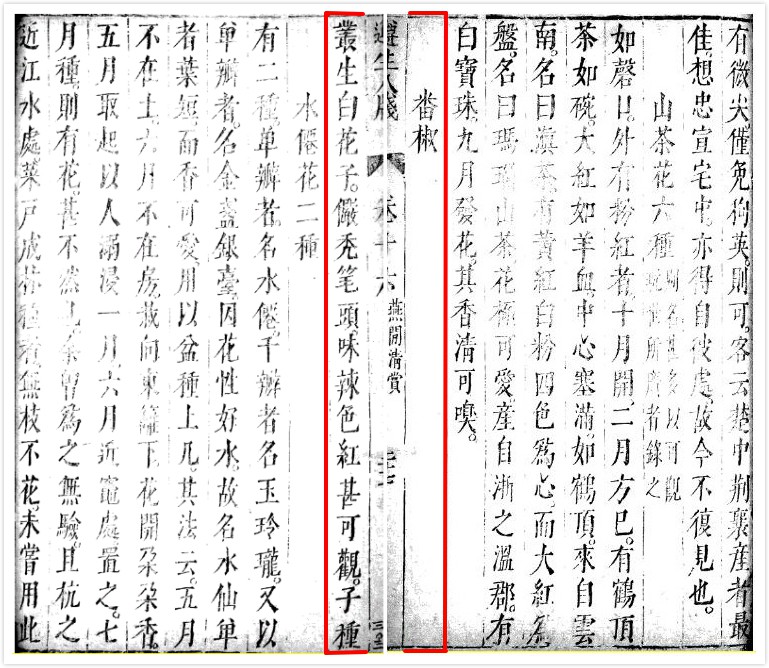 有微尖僅免狗英則可客云楚中荆襄産者最
佳想忠宣宅中亦得自彼處故今不復見也
山茶花六種
者錄之
如磬口外有粉紅者十月開二月方已有鶴頂
茶如碗大紅如羊血中心塞滿如鶴頂來自雲
南名曰滇茶有黃紅白粉四色爲心而大紅爲
盤名曰瑪瑙山茶花極可愛産自浙之溫郡有
白寶珠九月發花其香清可嗅
番椒
遵生八牋
卷十六
燕閒清賞
叢生白花子儼禿笔頭味辣色紅甚可觀子種
水僊花二種
有二種单瓣者名水僊千瓣者名玉玲瓏又以
单瓣者名金盞銀臺因花性好水故名水仙单
者葉短而香可愛用以盆種上几其法云五月
不在土六月不在房栽向東籬下花開朶朶香
五月取起以人溺浸一月六月近竈處置之七
月種則有花甚不然也余曾爲之無驗且杭之
近江水處菜戸成林種者無枝不花未嘗用此